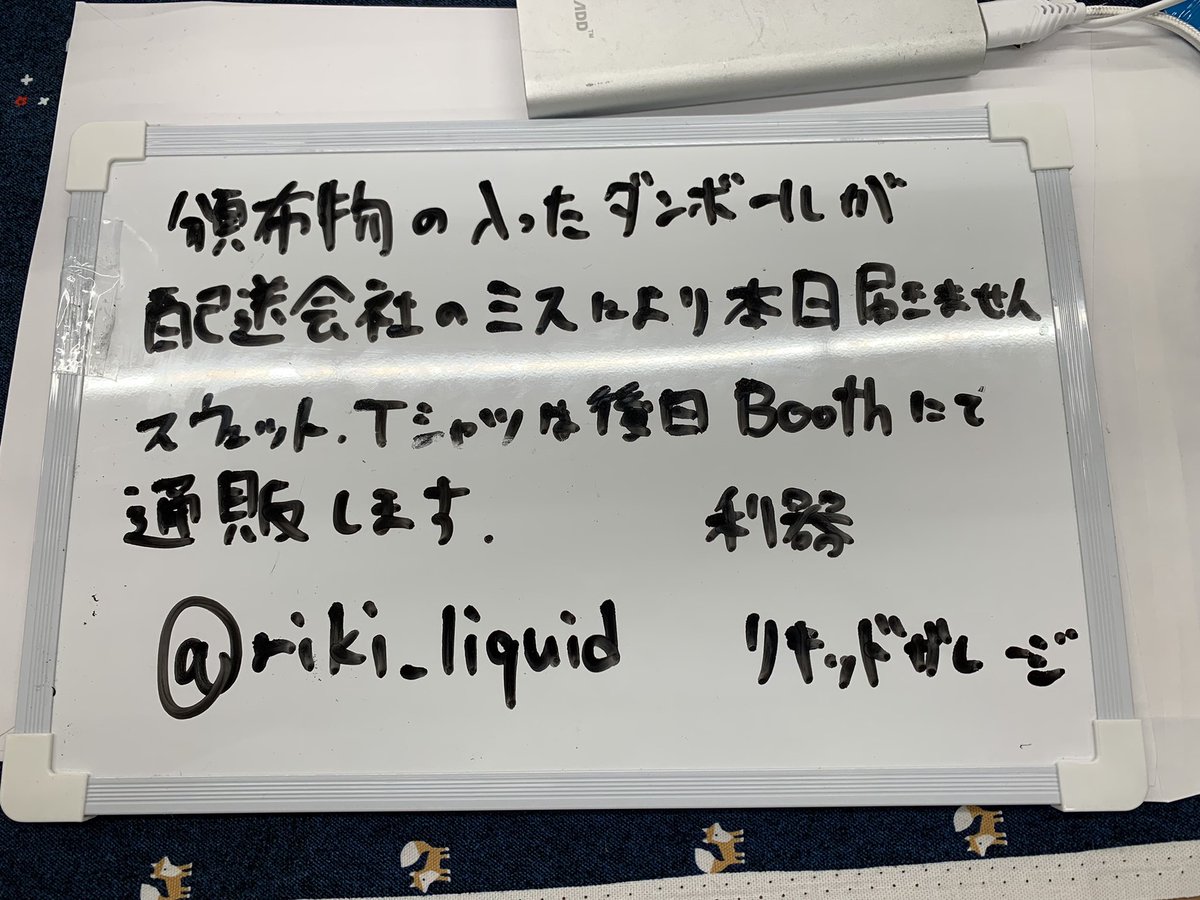 頒布物の入ったダンボールが
配送会社のミスにより本日届きません
スウェット.Tシャツは後日Boothにて
通販します.
利器
@riki_liquid
リキッドガレージ